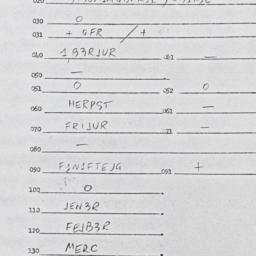 030 O
031 + GFR / +
040 1B3RJUR 041 —
050 —
051 O 052 O
060 HERPST 061 —
070 FRIJUR 71 —
080 —
090 F1N1FTEJG 091 +
100 O
110 JEN3R
120 FEJB3R
130 MERC